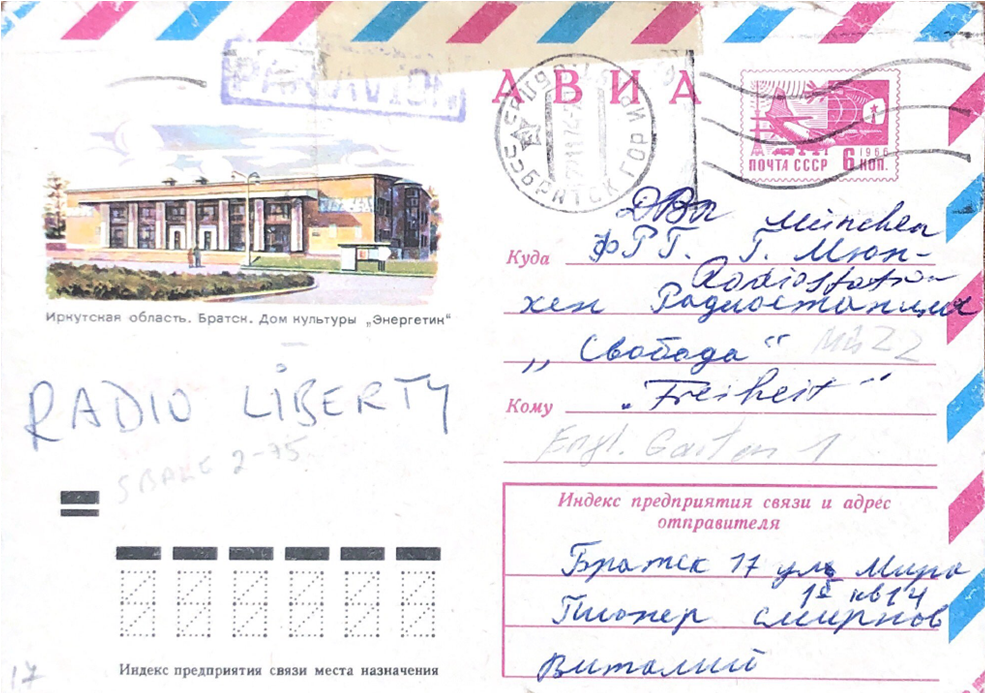 PAR AVION
АВИА
ПОЧТА СССР 6 КОП.
1966
СССР БРАТСК ИРК
Иркутская область. Братск. Дом культуры „Энергетик“
Куда
München
ФРГ. г. Мюн-
Radiostation
хен Радиостанция
„Свобода“
Кому
„Freiheit“
Engl. Garten 1
RADIO LIBERTY
2-75
Индекс предприятия связи и адрес
отправителя
Братск 17 ул Мира
кв 14
Пионер Смирнов
Виталий
Индекс предприятия связи места назначения
17